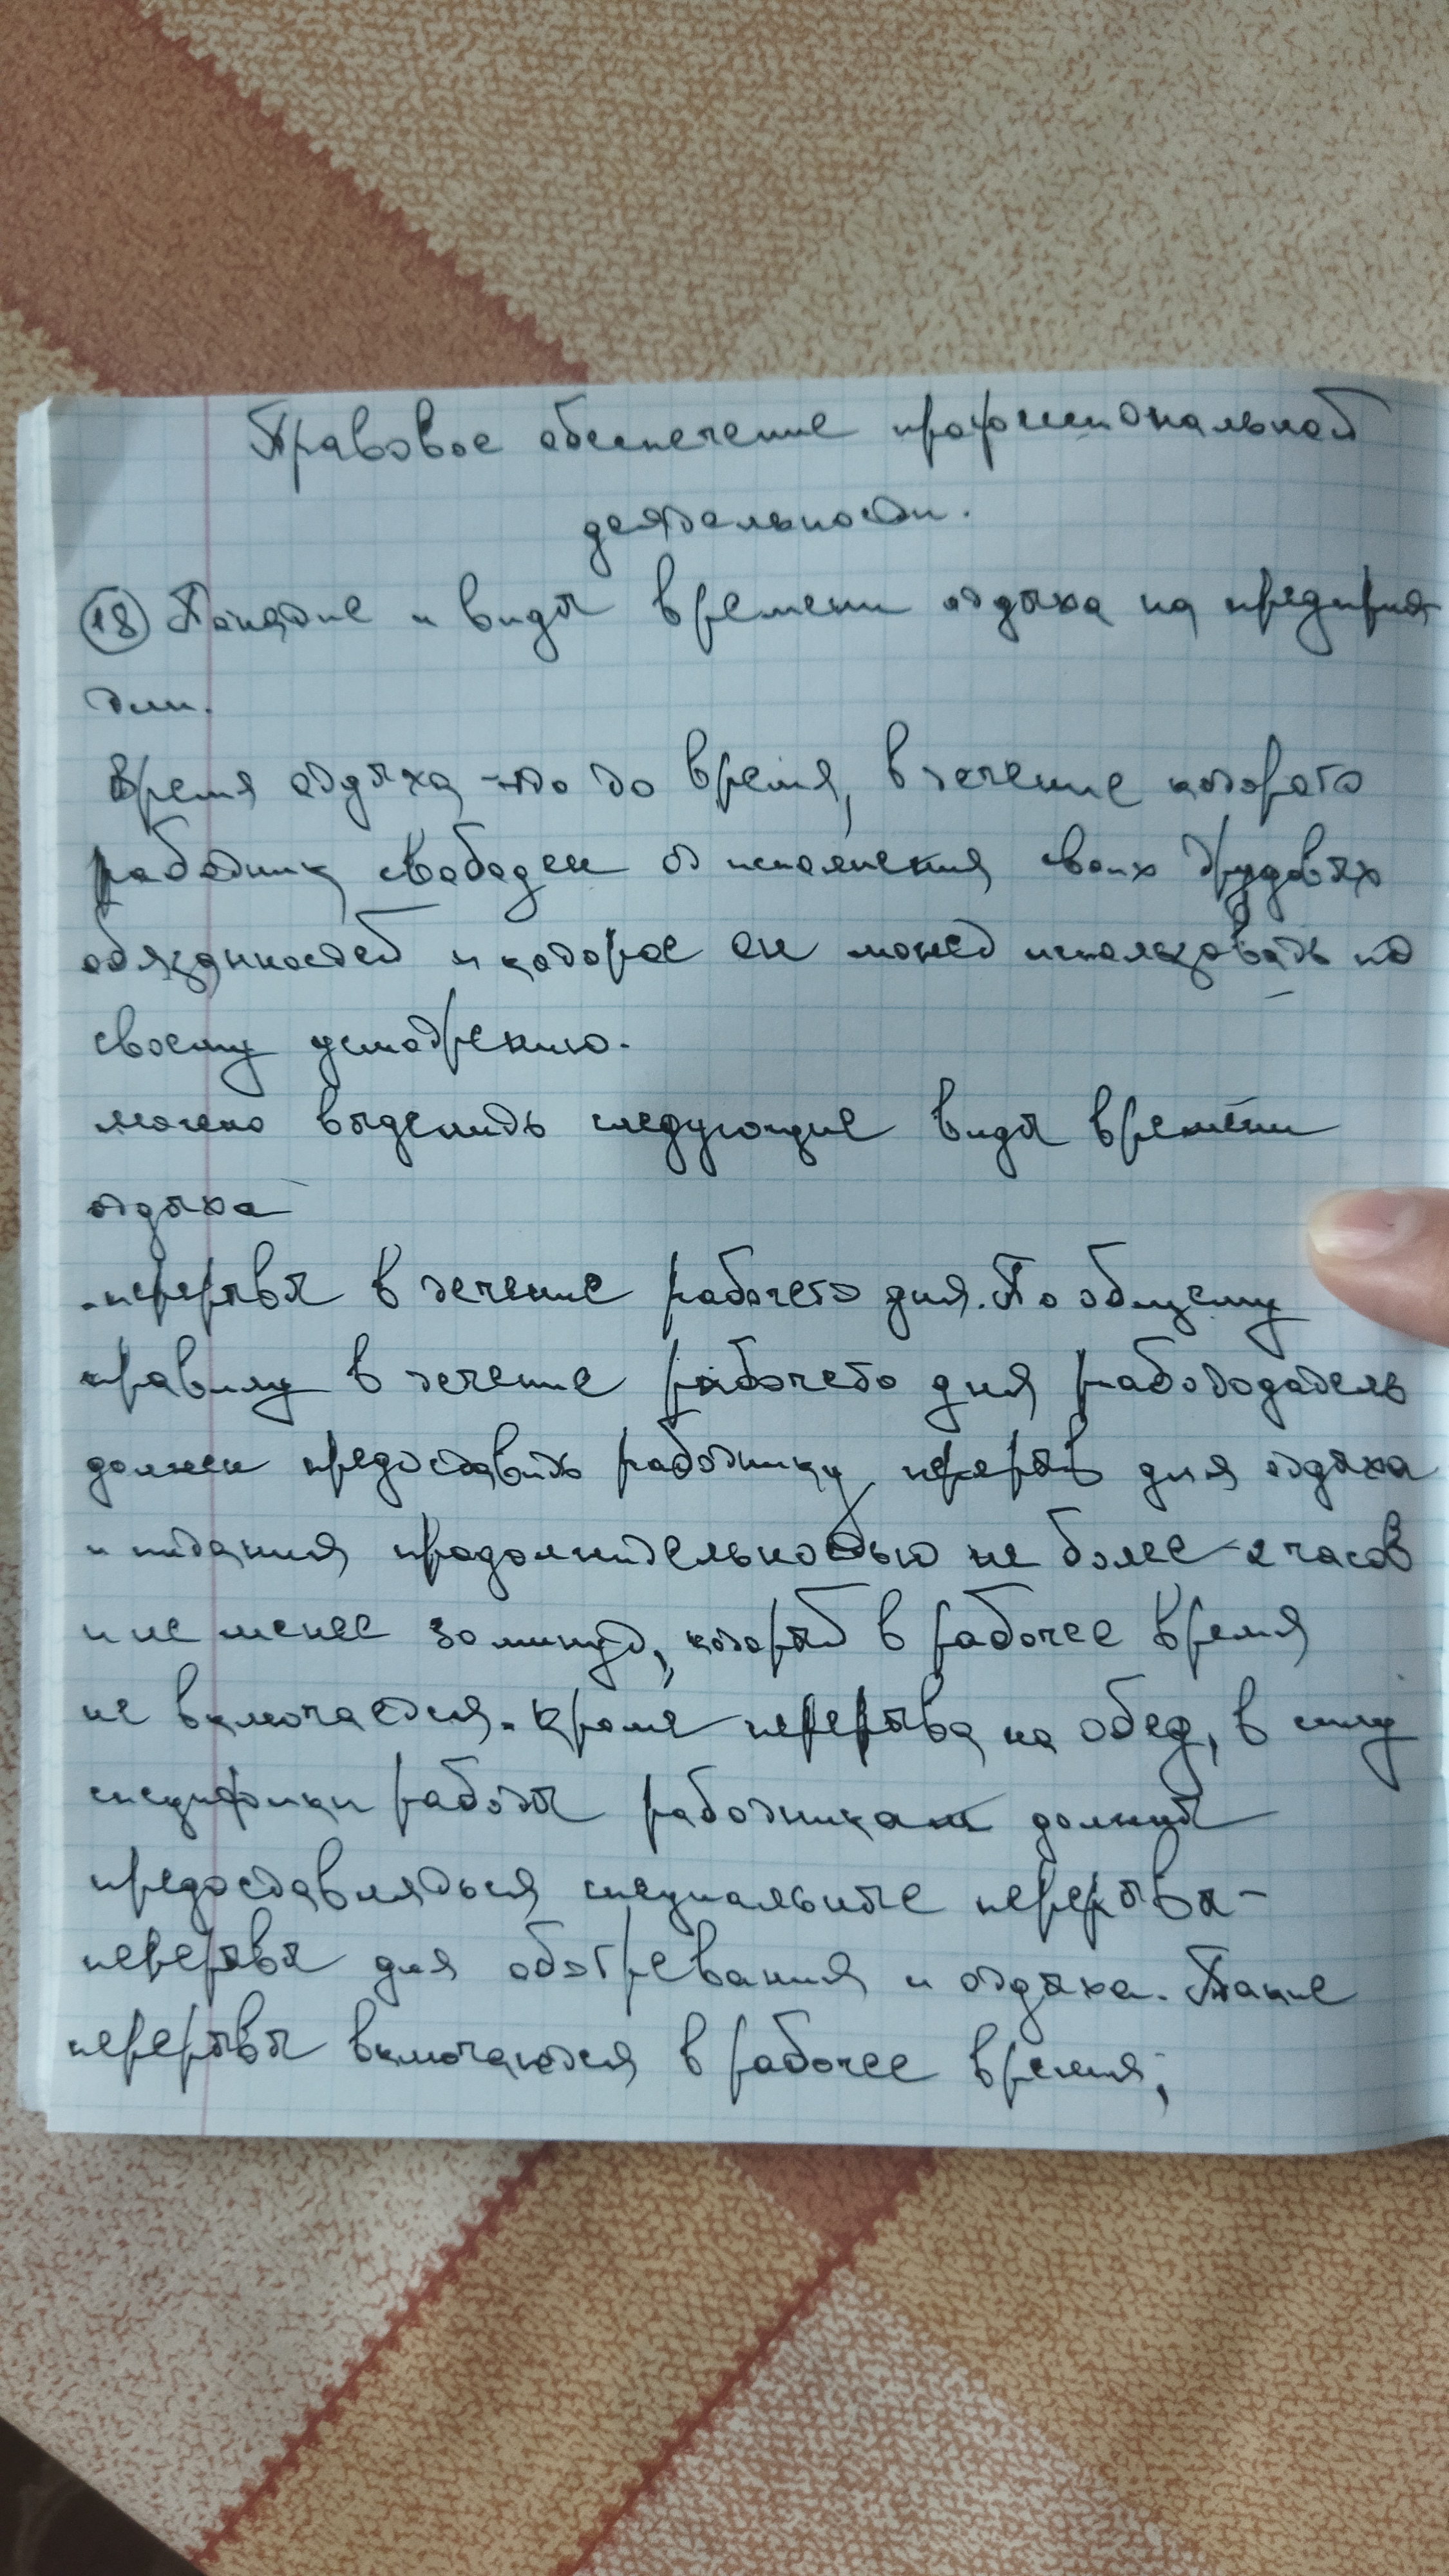 Правовое обеспечение профессиональной
деятельности.
18 Понятие и виды времени отдыха на предприя-
тии.
Время отдыха - это то время, в течение которого
работник свободен от исполнения своих трудовых
обязанностей и которое он может использовать по
своему усмотрению.
можно выделить следующие виды времени
отдыха
- перерывы в течение рабочего дня. По общему
правилу в течение рабочего дня работодатель
должен предоставить работнику перерыв для отдыха
и питания продолжительностью не более 2 часов
и не менее 30 минут, который в рабочее время
не включается. Кроме перерыва на обед, в силу
специфики работы работникам должны
предоставляться специальные перерывы -
перерывы для обогревания и отдыха. Такие
перерывы включаются в рабочее время;